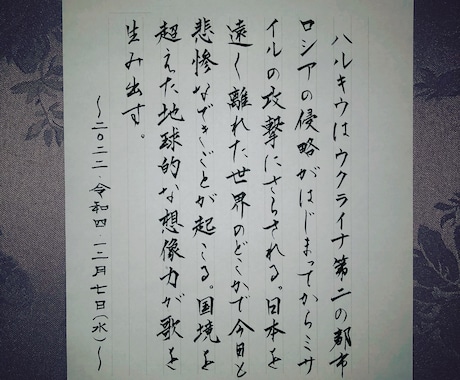 ハルキウはウクライナ第二の都市
ロシアの侵略がはじまってからミサ
イルの攻撃にさらされる。日本を
遠く離れた世界のどこかで今日と
悲惨なできごとが起こる。国境を
超えた地球的な想像力が歌を
生み出す。
〜二〇二二・令和四・十二月七日(水)〜